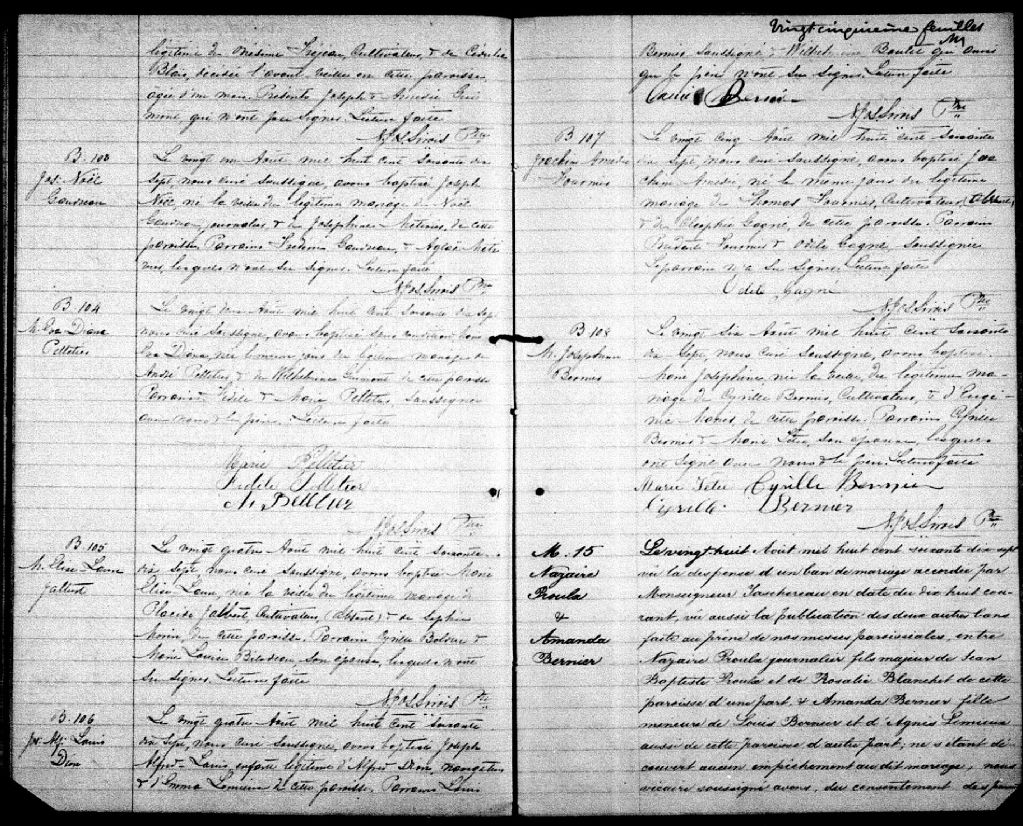 légitime de Medime Trepan, Cultivateur, & de Cédulie
Blais, décédée l'avant veille en cette paroisse,
agée d'un mois. Présents Joseph & Amédée Gui
mont qui n'ont pu signer. Lecture faite
N. Jos. Sirois Ptre
B. 103
Jos. Noël
Gaudreau
Le vingt un Août mil huit cent soixante dix
sept, nous curé soussigné, avons baptisé Joseph
Noël né la veille du légitime mariage de Noël
Gaudreau, journalier & de Joséphine Méthivier de cette
paroisse. Parrain Gaudreau & Aglaé
lesquels n'ont su signer. Lecture faite
N. Jos. Sirois Ptre
B. 104
M. Eva Diana
Pelletier
Le vingt deux Août mil huit cent soixante dix sept
nous curé soussigné, avons baptisé sous condition Marie
Eva Diana, née le même jour du légitime mariage de
André Pelletier & de Wilhelmine Guimont de cette paroisse
Parrain Fidèle & Marie Pelletier, soussignés
avec nous & le père. Lecture faite
Marie Pelletier
Fidèle Pelletier
A. Pelletier
N. Jos. Sirois Ptre
B. 105
M. Elise Laura
Jalbert
Le vingt quatre Août mil huit cent soixante
dix sept, nous curé soussigné, avons baptisé Marie
Elise Laura, née la veille du légitime mariage de
Placide Jalbert, Cultivateur, (absent) & de Sophie
Morin de cette paroisse. Parrain Cyrille Bolduc &
Marie Louise Bilodeau, son épouse, lesquels n'ont
su signer. Lecture faite
N. Jos. Sirois Ptre
B. 106
Jos. Alf. Louis
Dion
Le vingt quatre Août mil huit cent soixante
dix sept, nous curé soussigné, avons baptisé Joseph
Alfred Louis enfant légitime d'Alfred Dion, navigateur
& d'Emma Lemieux de cette paroisse. Parrain Louis
Vingt cinquième feuillet
Bernier soussigné & Wilhelmine Boulé qui ainsi
que le père n'ont su signer. Lecture faite
Louis Bernier
N. Jos. Sirois Ptre
B. 107
Joachim Amédée
Fournier
Le vingt cinq Août mil huit cent soixante
dix sept, nous curé soussigné, avons baptisé Joa
chim Amédée, né le même jour du légitime
mariage de Thomas Fournier, Cultivateur (absent)
& de Cléophée Gagné, de cette paroisse. Parrain
Prudent Fournier & Odile Gagné, soussignée
Le parrain n'a su signer. Lecture faite
Odile Gagné
N. Jos. Sirois Ptre
B. 108
M. Joséphine
Bernier
Le vingt six Août mil huit cent soixante
dix sept, nous curé soussigné, avons baptisé
Marie Joséphine, née la veille, du légitime ma-
riage de Cyrille Bernier, Cultivateur, & d'Eugé
nie Morin de cette paroisse. Parrain Cyrille
Bernier & Marie Têtu, son épouse, lesquels
ont signé avec nous & le père. Lecture faite
Marie Têtu Cyrille Bernier
Cyrille Bernier
N. Jos. Sirois Ptre
M. 15
Nazaire
Proulx
&
Amanda
Bernier
Le vingt huit Août mil huit cent soixante dix sept
vu la dispense d'un ban de mariage accordée par
Monseigneur Taschereau en date du dix huit cou-
rant, vu aussi la publication des deux autres bans
faite au prône de nos messes paroissiales, entre
Nazaire Proulx journalier fils majeur de Jean
Baptiste Proulx et de Rosalie Blanchet de cette
paroisse d'une part, & Amanda Bernier fille
mineure de Louis Bernier et d'Agnès Lemieux
aussi de cette paroisse d'autre part; ne s'étant dé-
couvert aucun empêchement au dit mariage, nous
vicaire soussigné avons, du consentement des parents